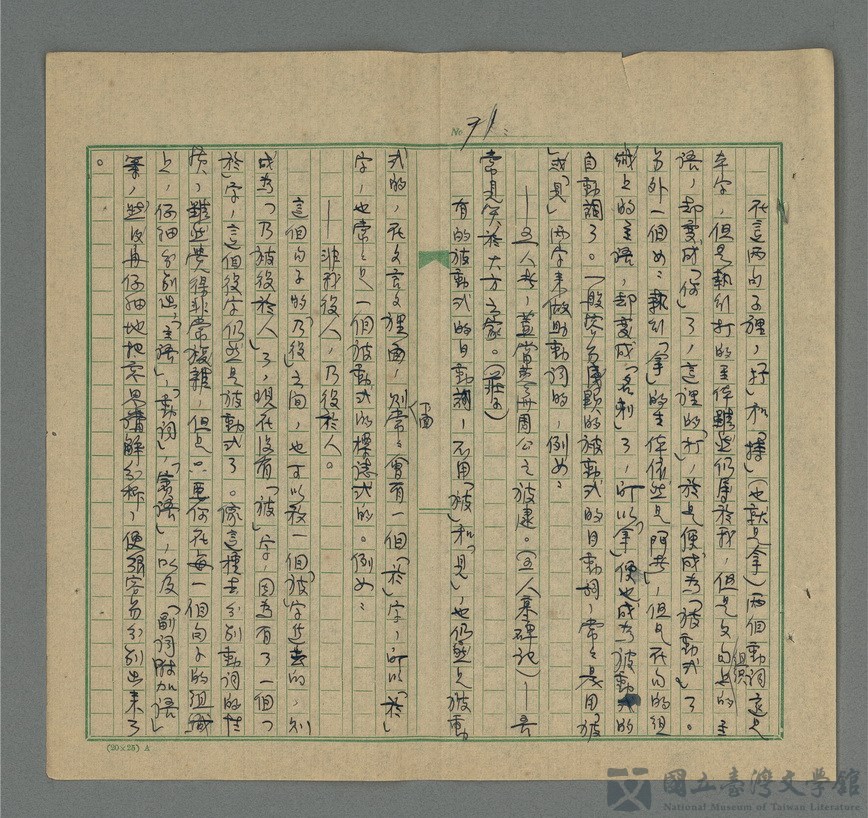 No 71.
在這兩句子裡，「打」和「捧」（也就是拿）兩個動詞這是
本字，但是執行打的主体雖然仍屬於我，但是文句組織上的主
語，却變成「何」了，這裡的「打」，於是便成為「被動式」了。
另外一個如：執行「拿」的主体依然是「阿
」，但是在句的組
織上的主語，却變成「名刺」了，所以「拿」便也成為被動式的
自動詞了。一般容易識別的被動式的自動詞，常々是用「被」
或「見」兩字來做助動詞的，例如：
——五人者，蓋當蓼洲周公之被逮。（五人墓碑記）——吾
常見笑於大方之家。（莊子）
有的被動式的自動詞，不用「被」和「見」，也仍然是被動
式的，在文言文裡面，則常々會有一個「於」字，所以「於」
字，也常々是一個被動式的標誌式的。例如：
——非我役人，乃役於人。
這個句子的「乃役」之間，也可以放一個「被」字進去的，則
成為「乃被役於人」了，現在沒有「被」字，因為有了一個「
於」字，這個役字仍然是被動式了。像這種去分別動詞的性
質，雖然覺得非常複雜，但是只要你在每一個句子的組織
上，仔細分別出，「主語」，「動詞」，「賓語」，以及「副詞附加語」
來，然後再仔細地把意思講解分析，便很容易分別出來了
。
(20×25) A
國立臺灣文學館
National Museum of Taiwan Literature